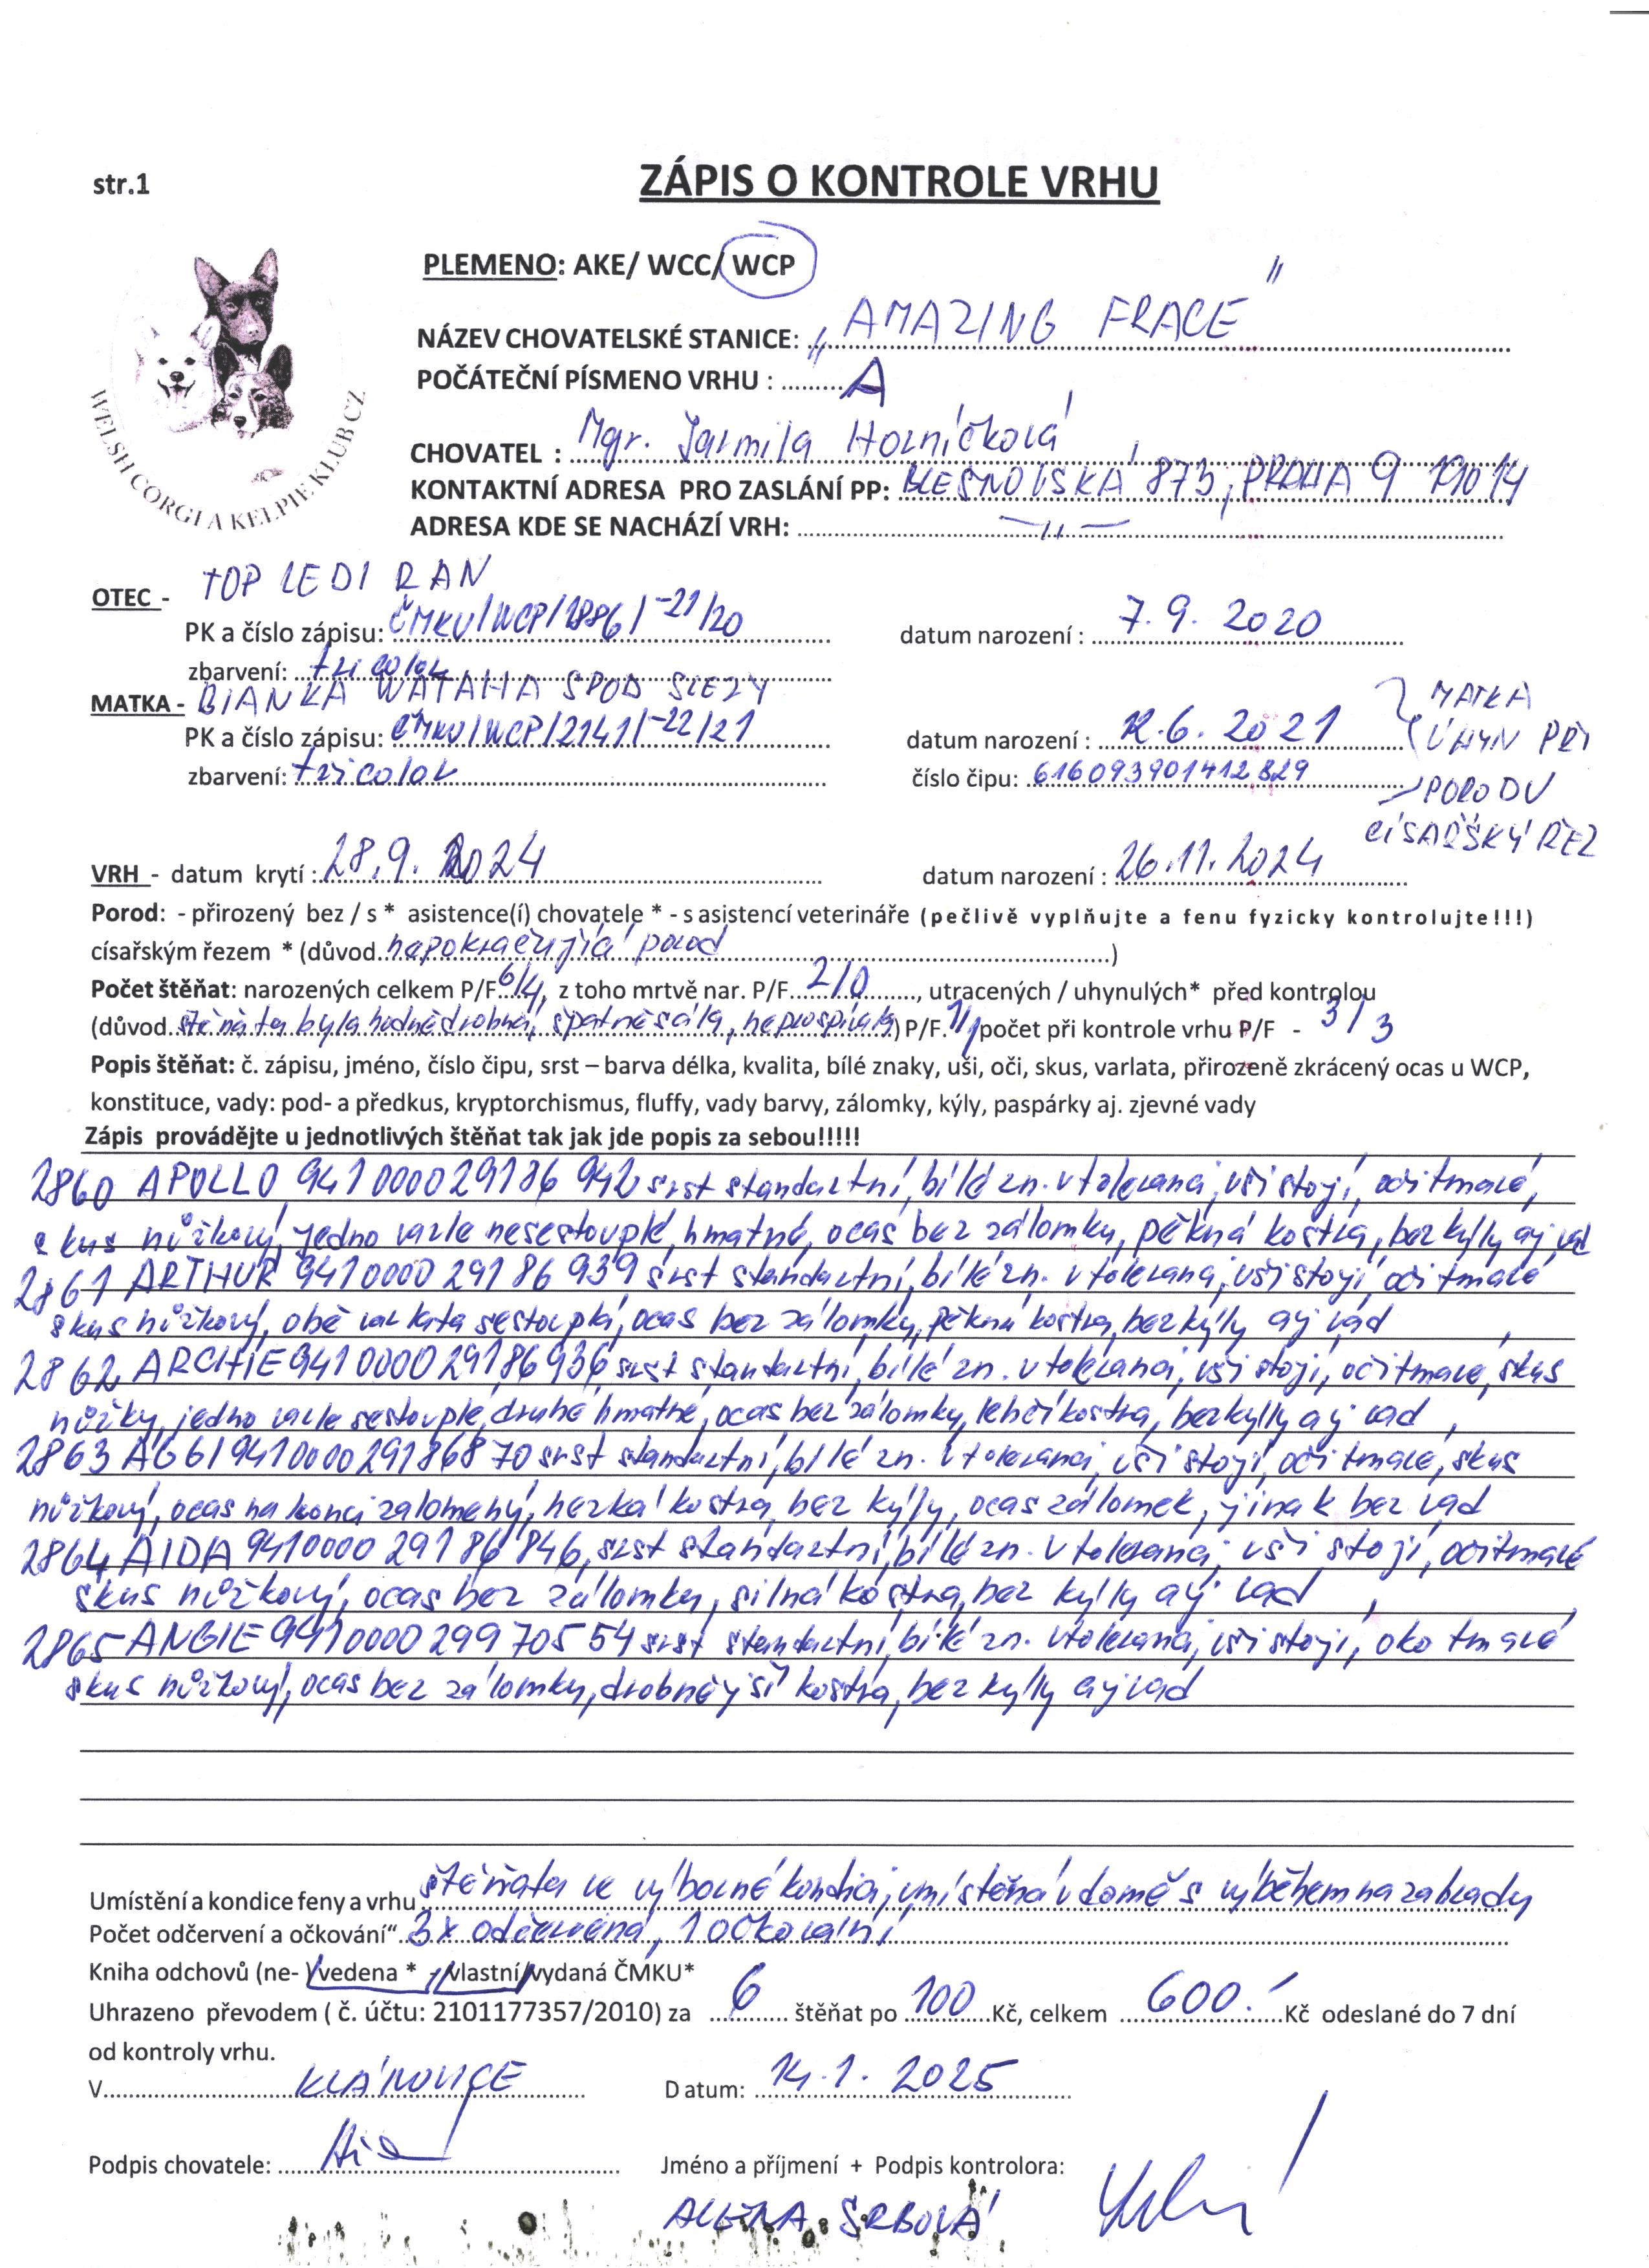 str.1
ZÁPIS O KONTROLE VRHU
PLEMENO: AKE/ WCC/ WCP
NÁZEV CHOVATELSKÉ STANICE: „AMAZING FRACE"
POČÁTEČNÍ PÍSMENO VRHU : A
CHOVATEL : Mgr. Jarmila Horníčková
KONTAKTNÍ ADRESA PRO ZASLÁNÍ PP: BLEŠNOVSKÁ 873, PRAHA 9 19014
ADRESA KDE SE NACHÁZÍ VRH: —||—
WELSH CORGI A KELPIE KLUB CZ
OTEC - TOP LEDI RAN
PK a číslo zápisu: ČMKU/WCP/1886/-21/20 datum narození : 7.9. 2020
zbarvení: tricolor
MATKA - BIANKA WATAHA SPOD SLEZY
PK a číslo zápisu: ČMKU/WCP/2141/-22/21 datum narození : 12.6. 2021
zbarvení: tricolor číslo čipu: 616093901412829
MATKA
ÚHYN PŘI
PORODU
CÍSAŘSKÝ ŘEZ
VRH - datum krytí : 28.9. 2024 datum narození : 26.11. 2024
Porod: - přirozený bez / s * asistence(í) chovatele * - s asistencí veterináře (pečlivě vyplňujte a fenu fyzicky kontrolujte!!!)
císařským řezem * (důvod nepokračující porod )
Počet štěňat: narozených celkem P/F 6/4, z toho mrtvě nar. P/F 2/0, utracených / uhynulých* před kontrolou
(důvod štěňata byla hodně drobná, špatně sála, neprospívala) P/F. 1/1 počet při kontrole vrhu P/F - 3/3
Popis štěňat: č. zápisu, jméno, číslo čipu, srst – barva délka, kvalita, bílé znaky, uši, oči, skus, varlata, přirozeně zkrácený ocas u WCP,
konstituce, vady: pod- a předkus, kryptorchismus, fluffy, vady barvy, zálomky, kýly, paspárky aj. zjevné vady
Zápis provádějte u jednotlivých štěňat tak jak jde popis za sebou!!!!!
2860 APOLLO 941000029186942 srst standartní, bílé zn. v toleranci, uši stojí, oči tmavé,
skus nůžkový, jedno varle nesestouplé, hmatné, ocas bez zálomku, pěkná kostra, bez kýly aj vad
2861 ARTHUR 941000029186939 srst standartní, bílé zn. v toleranci, uši stojí, oči tmavé
skus nůžkový, obě varlata sestouplá, ocas bez zálomku, pěkná kostra, bez kýly aj vad
2862 ARCHIE 941000029186936, srst standartní, bílé zn. v toleranci, uši stojí, oči tmavé, skus
nůžky, jedno varle sestouplé, druhé hmatné, ocas bez zálomku, lehčí kostra, bez kýly aj vad
2863 AGGI 941000029186870 srst standartní, bílé zn. v toleranci, uši stojí, oči tmavé, skus
nůžkový, ocas na konci zalomený, hezká kostra, bez kýly, ocas zálomek, jinak bez vad
2864 AIDA 941000029186846, srst standartní, bílé zn. v toleranci, uši stojí, oči tmavé
skus nůžkový, ocas bez zálomku, silná kostra, bez kýly aj vad
2865 ANGIE 941000029970554 srst standartní, bílé zn. v toleranci, uši stojí, oko tmavé
skus nůžkový, ocas bez zálomku, drobnější kostra, bez kýly aj vad
Umístění a kondice feny a vrhu štěňata ve výborné kondici, umístěná v domě s výběhem na zahrady
Počet odčervení a očkování“ 3x odčervená, 1 očkování
Kniha odchovů (ne- )vedena * - vlastní/vydaná ČMKU*
Uhrazeno převodem ( č. účtu: 2101177357/2010) za 6 štěňat po 100 Kč, celkem 600.- Kč odeslané do 7 dní
od kontroly vrhu.
V KLÁNOVICE Datum: 14.1. 2025
Podpis chovatele: Jméno a příjmení + Podpis kontrolora:
ALENA SRBOVÁ